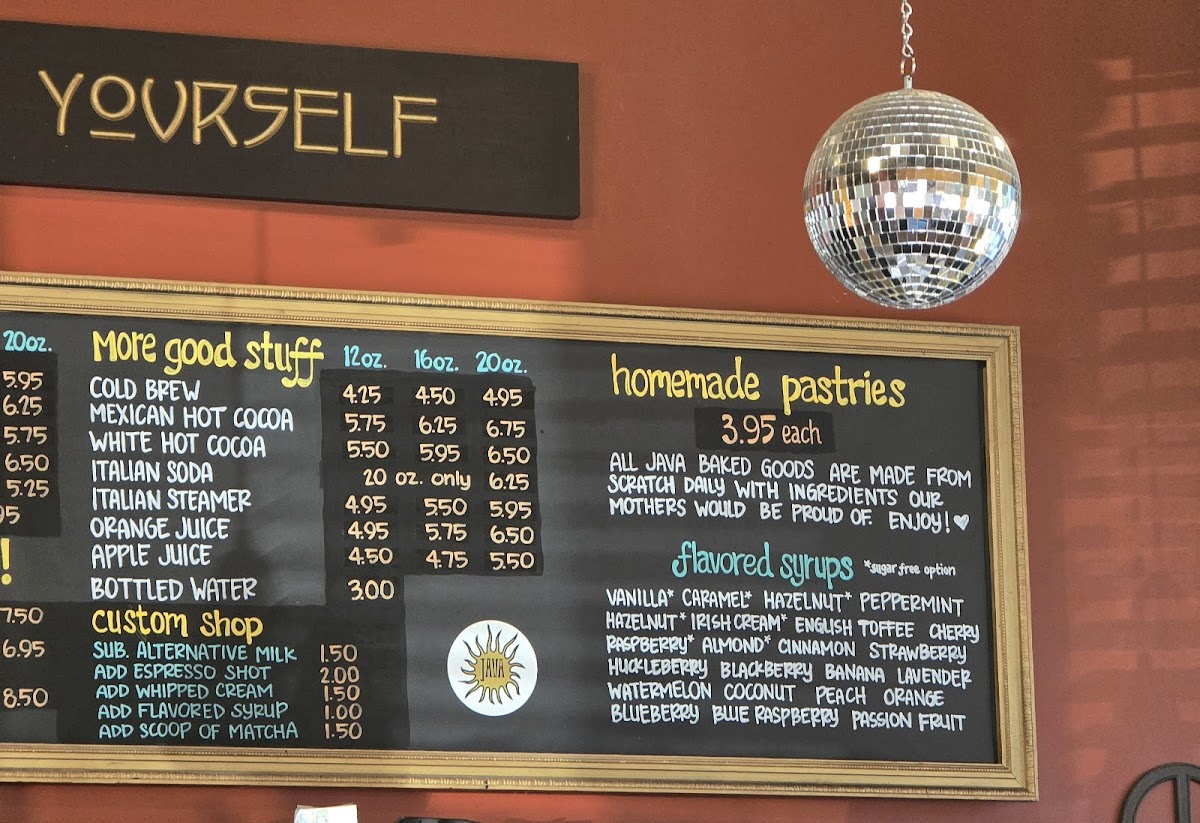 YOURSELF
20oz.
5.95
6.25
5.75
6.50
5.25
95
!
7.50
6.95
8.50
More good stuff 12oz. 16oz. 20oz.
COLD BREW 4.25 4.50 4.95
MEXICAN HOT COCOA 5.75 6.25 6.75
WHITE HOT COCOA 5.50 5.95 6.50
ITALIAN SODA 20 oz. only 6.25
ITALIAN STEAMER 4.95 5.50 5.95
ORANGE JUICE 4.95 5.75 6.50
APPLE JUICE 4.50 4.75 5.50
BOTTLED WATER 3.00
custom shop
SUB. ALTERNATIVE MILK 1.50
ADD ESPRESSO SHOT 2.00
ADD WHIPPED CREAM 1.50
ADD FLAVORED SYRUP 1.00
ADD SCOOP OF MATCHA 1.50
JAVA
homemade pastries
3.95 each
ALL JAVA BAKED GOODS ARE MADE FROM
SCRATCH DAILY WITH INGREDIENTS OUR
MOTHERS WOULD BE PROUD OF. ENJOY!♥
flavored syrups *sugar free option
VANILLA* CARAMEL* HAZELNUT* PEPPERMINT
HAZELNUT* IRISH CREAM* ENGLISH TOFFEE CHERRY
RASPBERRY* ALMOND* CINNAMON STRAWBERRY
HUCKLEBERRY BLACKBERRY BANANA LAVENDER
WATERMELON COCONUT PEACH ORANGE
BLUEBERRY BLUE RASPBERRY PASSION FRUIT